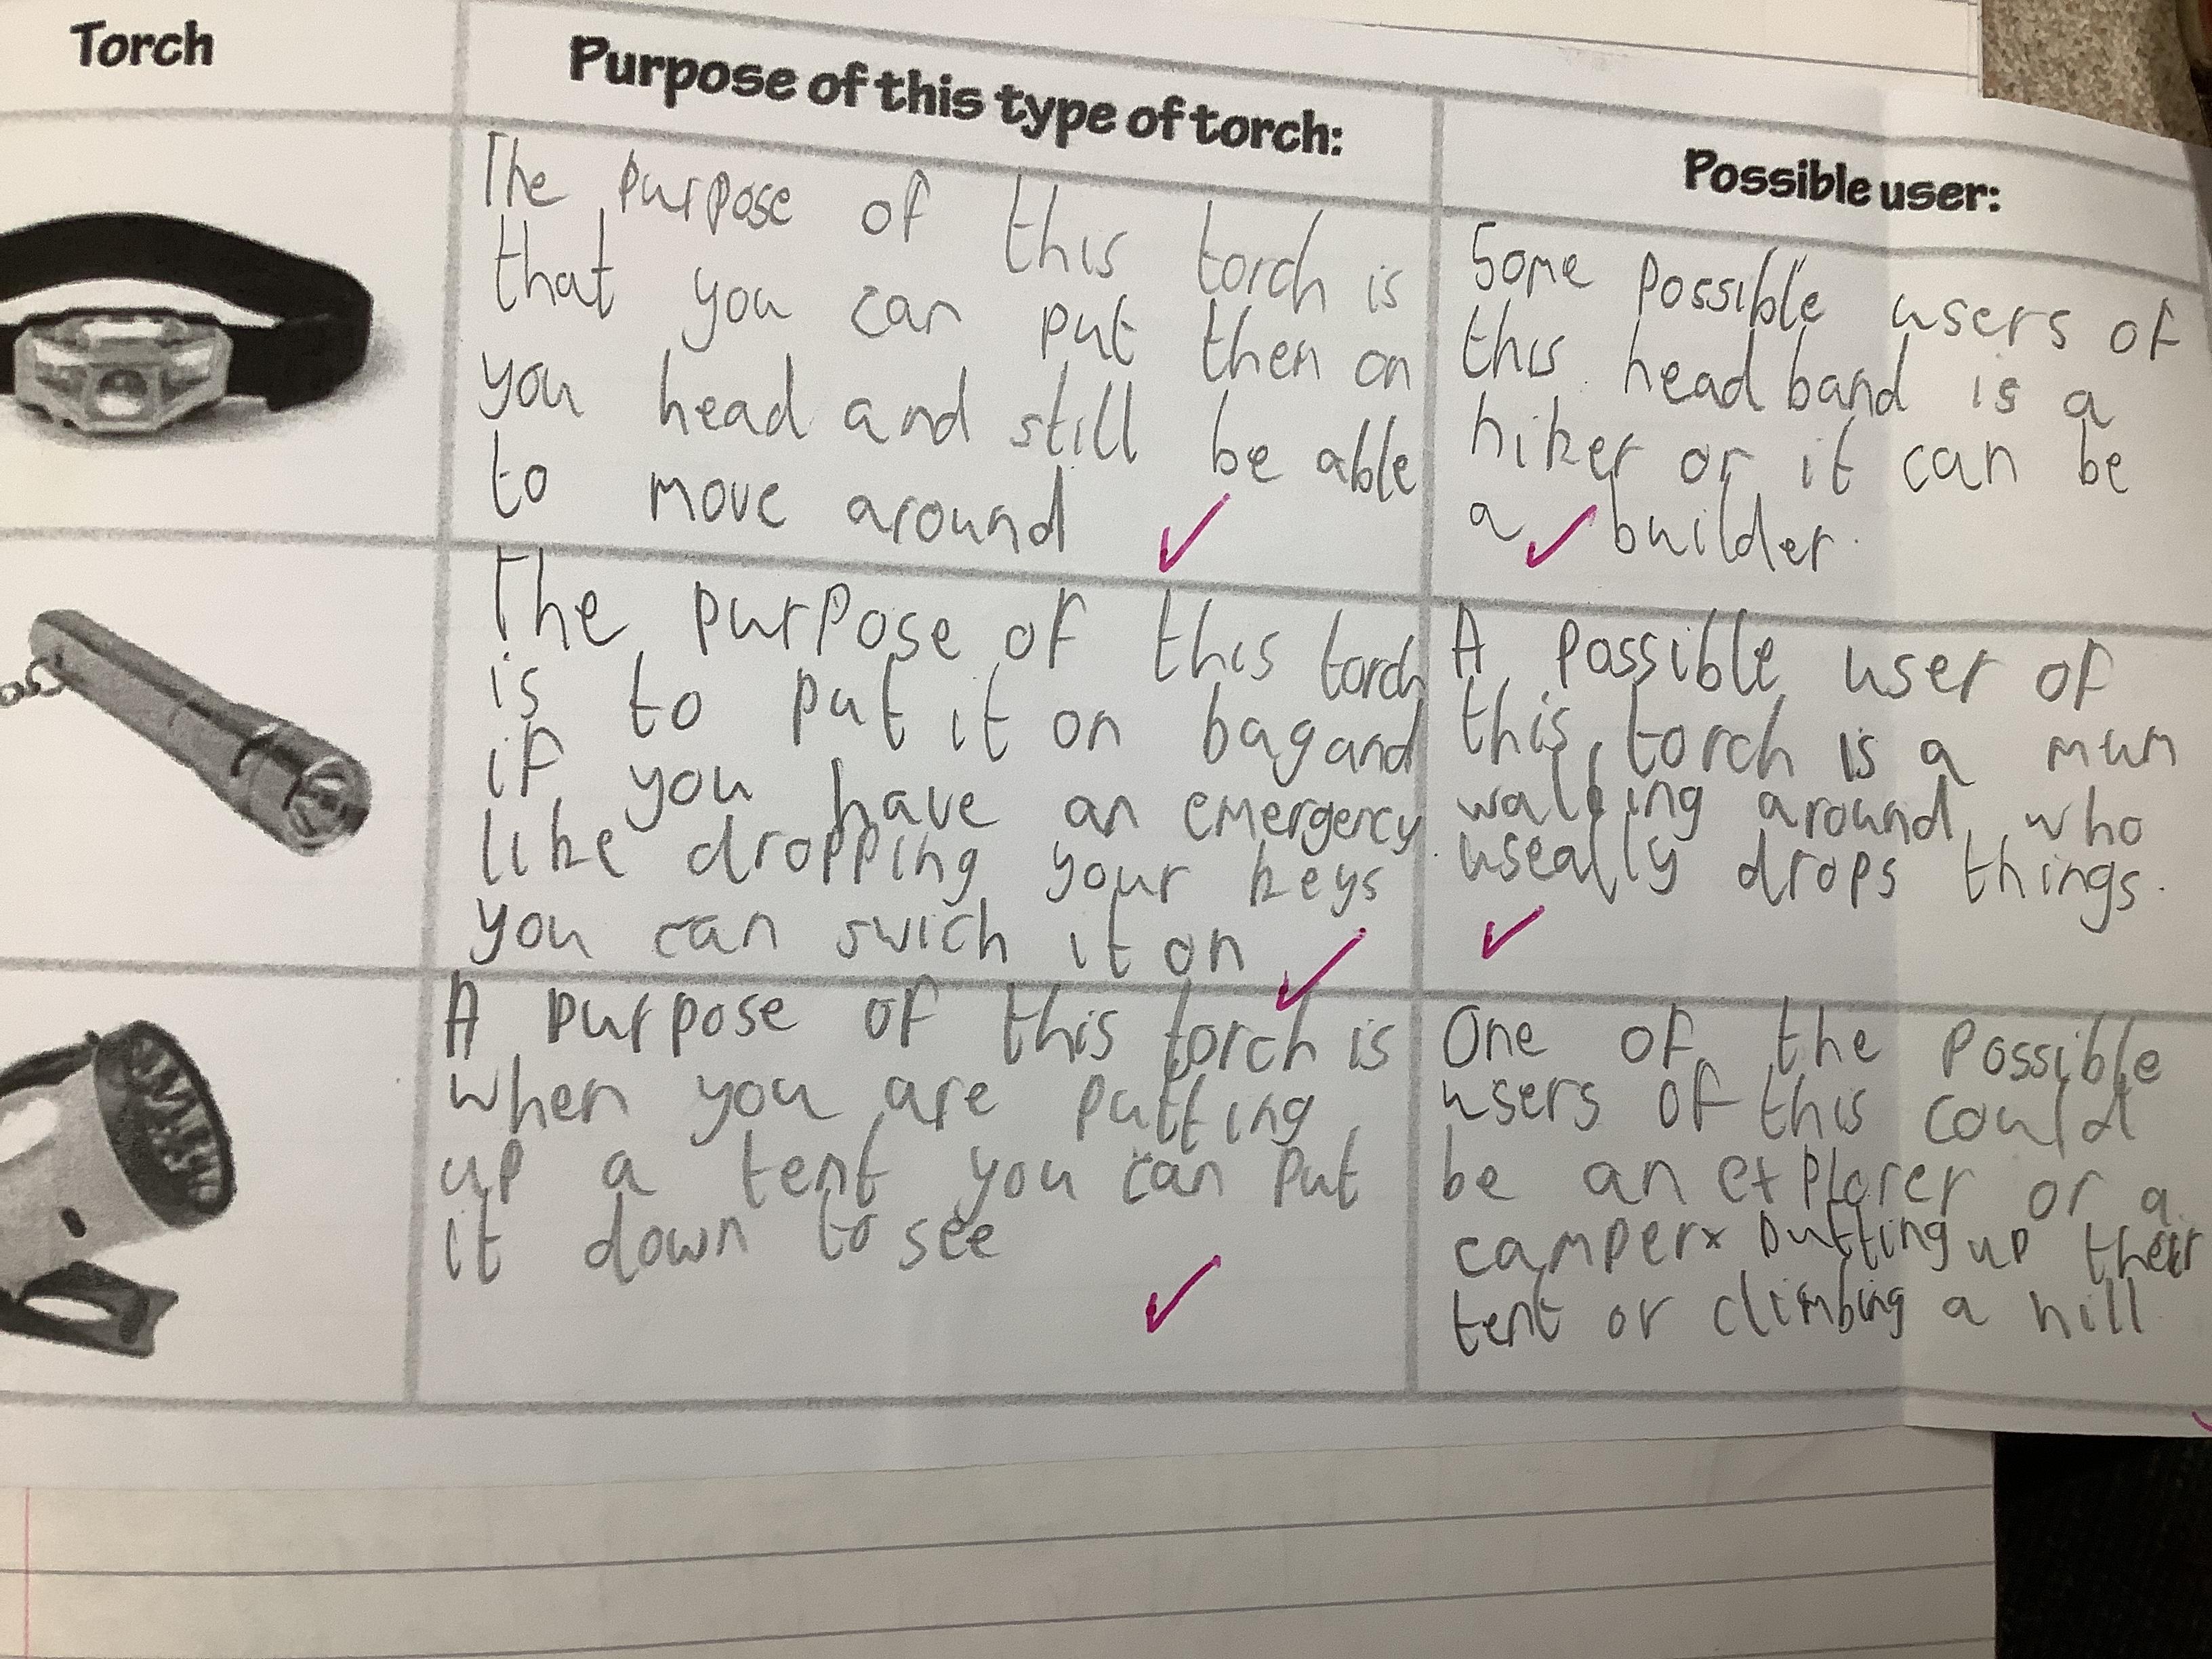 Torch
Purpose of this type of torch:
Possible user:
The purpose of this torch is
that you can put then on
you head and still be able
to move around
Some possible users of
this headband is a
hiker or it can be
a builder.
The purpose of this torch
is to put it on bag and
if you have an emergency
like dropping your keys
you can swich it on
A possible user of
this torch is a mum
walking around who
useally drops things.
A purpose of this torch is
when you are putting
up a tent you can put
it down to see
One of the possible
users of this could
be an explorer or a
camper putting up their
tent or climbing a hill